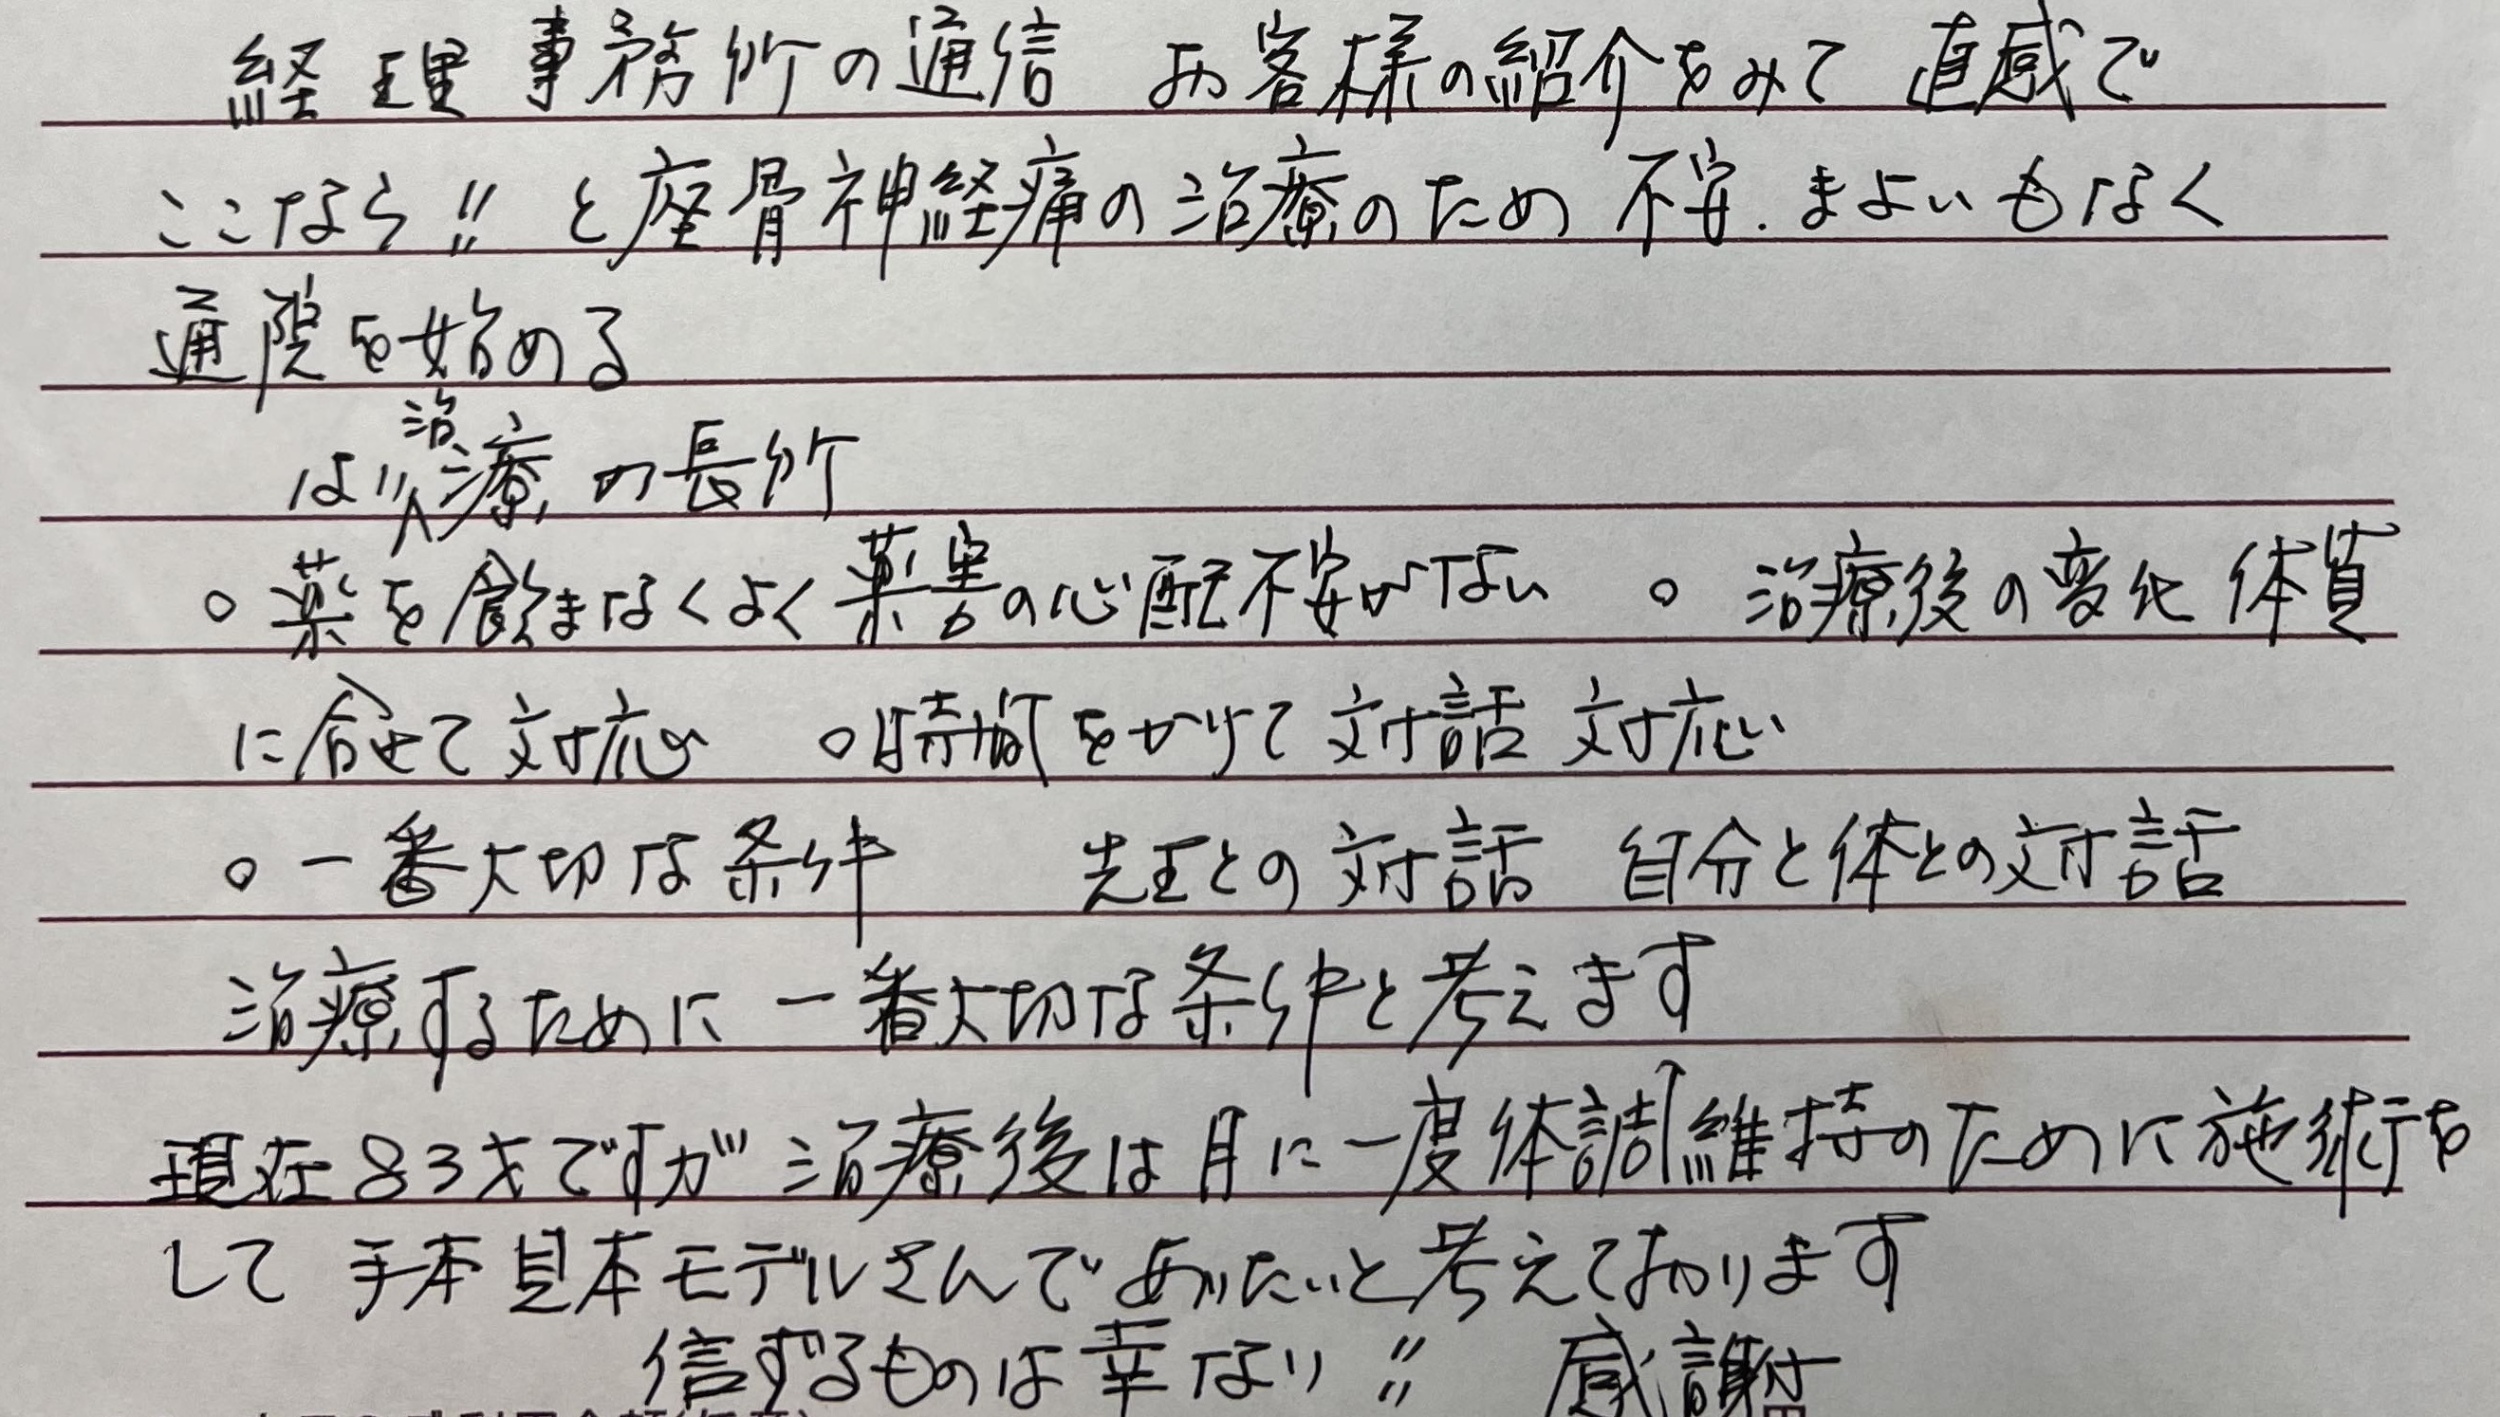 経理事務所の通信 お客様の紹介をみて 直感で
ここなら!! と座骨神経痛の治療のため 不安.まよいもなく
通院を始める
はり治療の長所
○薬を飲まなくよく薬害の心配不安がない ○治療後の変化 体質
に合せて対応 ○時間をかけて対話 対応
○一番大切な条件 先生との対話 自分と体との対話
治療するために一番大切な条件と考えます
現在83才ですが 治療後は月に一度体調維持のために施術を
して 手本見本モデルさんでありたいと考えております
信ずるものは幸なり!! 感謝